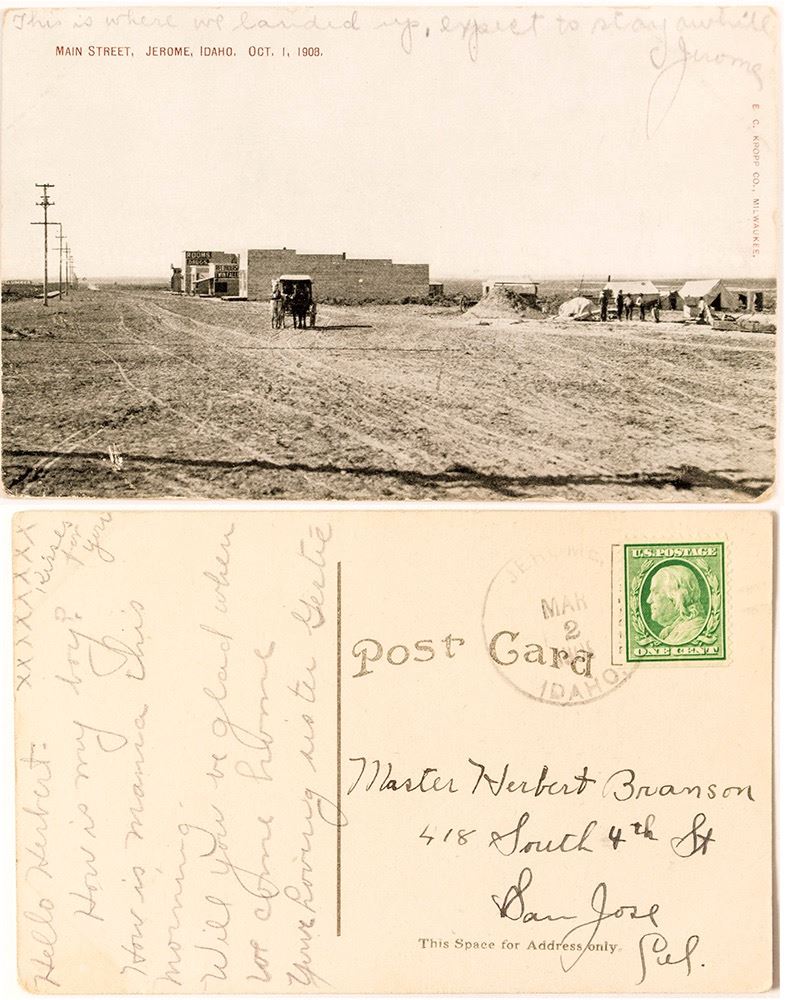 This is where we landed up, expect to stay awhile
Jerome
MAIN STREET, JEROME, IDAHO. OCT. 1, 1908.
E. C. KROPP CO., MILWAUKEE.
ROOMS
DRUGS
xxxxxxx
kisses
for
you
Hello Herbert-
How is my boy?
How is mama this
morning.
Will you be glad when
we come home
Your loving sister Gertie
Post Card
JEROME,
MAR
2
IDAHO.
U.S. POSTAGE
ONE CENT
Master Herbert Branson
418 South 4th St
San Jose
Cal.
This Space for Address only.